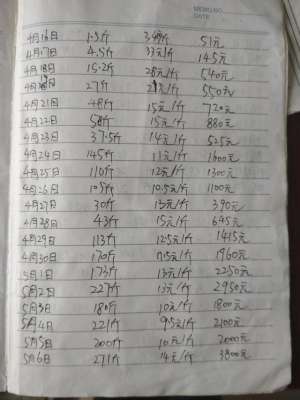 MEMO NO.
DATE
4月16日 1.5斤 34元/斤 51元
4月17日 4.5斤 33元/斤 145元
4月18日 15.2斤 28元/斤 540元
27斤 21元/斤 550元
4月21日 48斤 15元/斤 720元
4月22日 58斤 15元/斤 880元
4月23日 37.5斤 14元/斤 525元
4月24日 145斤 11元/斤 1600元
4月25日 110斤 12元/斤 1300元
4月26日 105斤 10.5元/斤 1100元
4月27日 30斤 13元/斤 390元
4月28日 43斤 15元/斤 645元
4月29日 113斤 12.5元/斤 1415元
4月30日 170斤 11.5元/斤 1960元
5月1日 173斤 13元/斤 2250元
5月2日 227斤 13元/斤 2950元
5月3日 180斤 10元/斤 1800元
5月4日 221斤 9.5元/斤 2100元
5月5日 200斤 10元/斤 2000元
5月6日 271斤 14元/斤 3800元